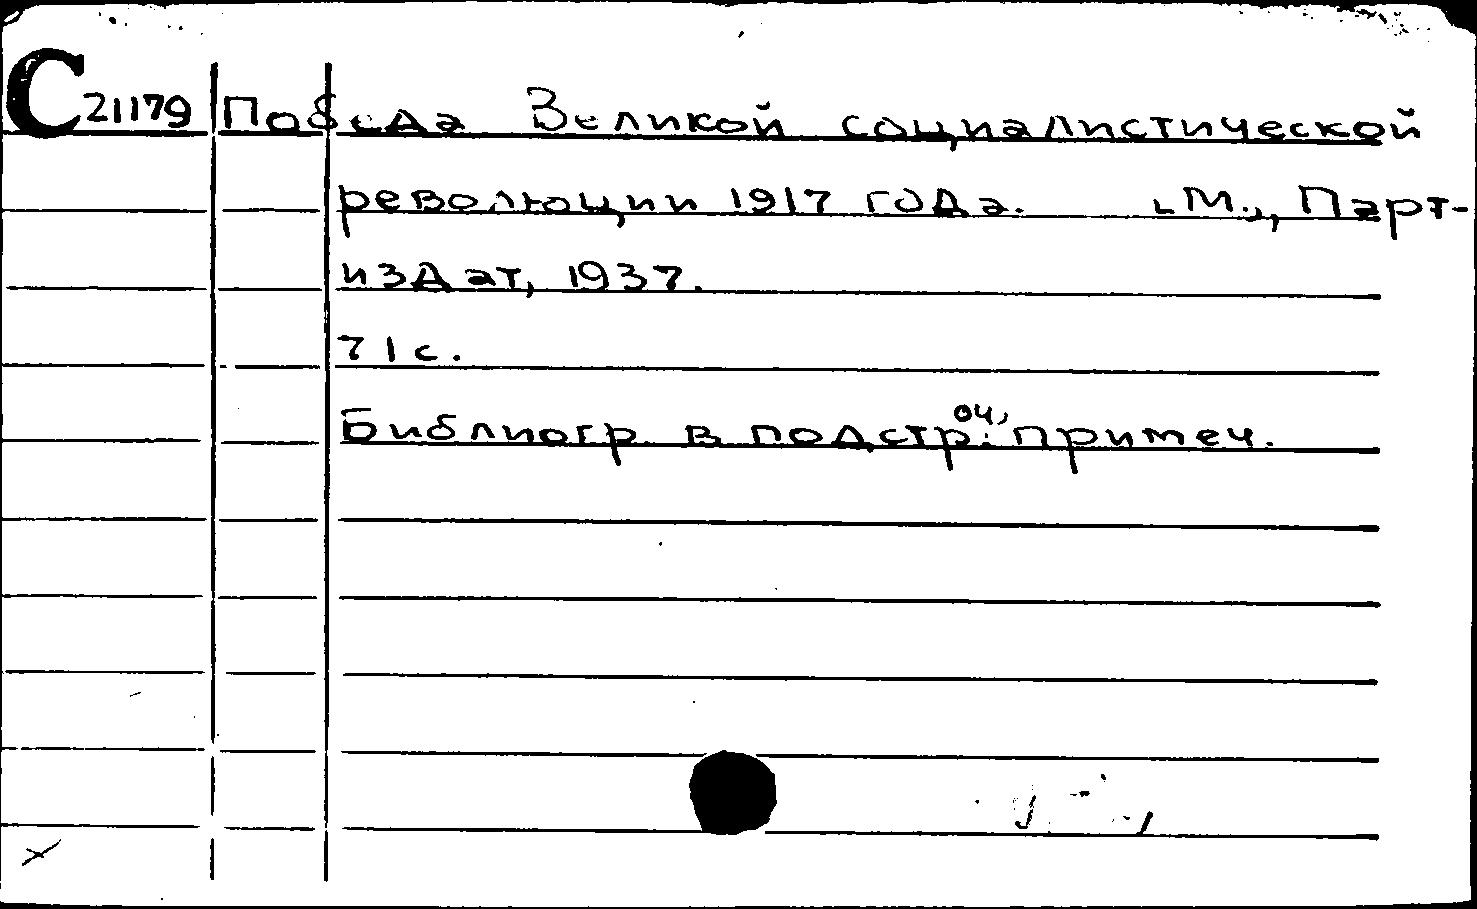 С 21179 Победа Великой социалистической
революции 1917 года. [М.], Парт-
издат, 1937.
71 с.
Библиогр. в подстроч. примеч.